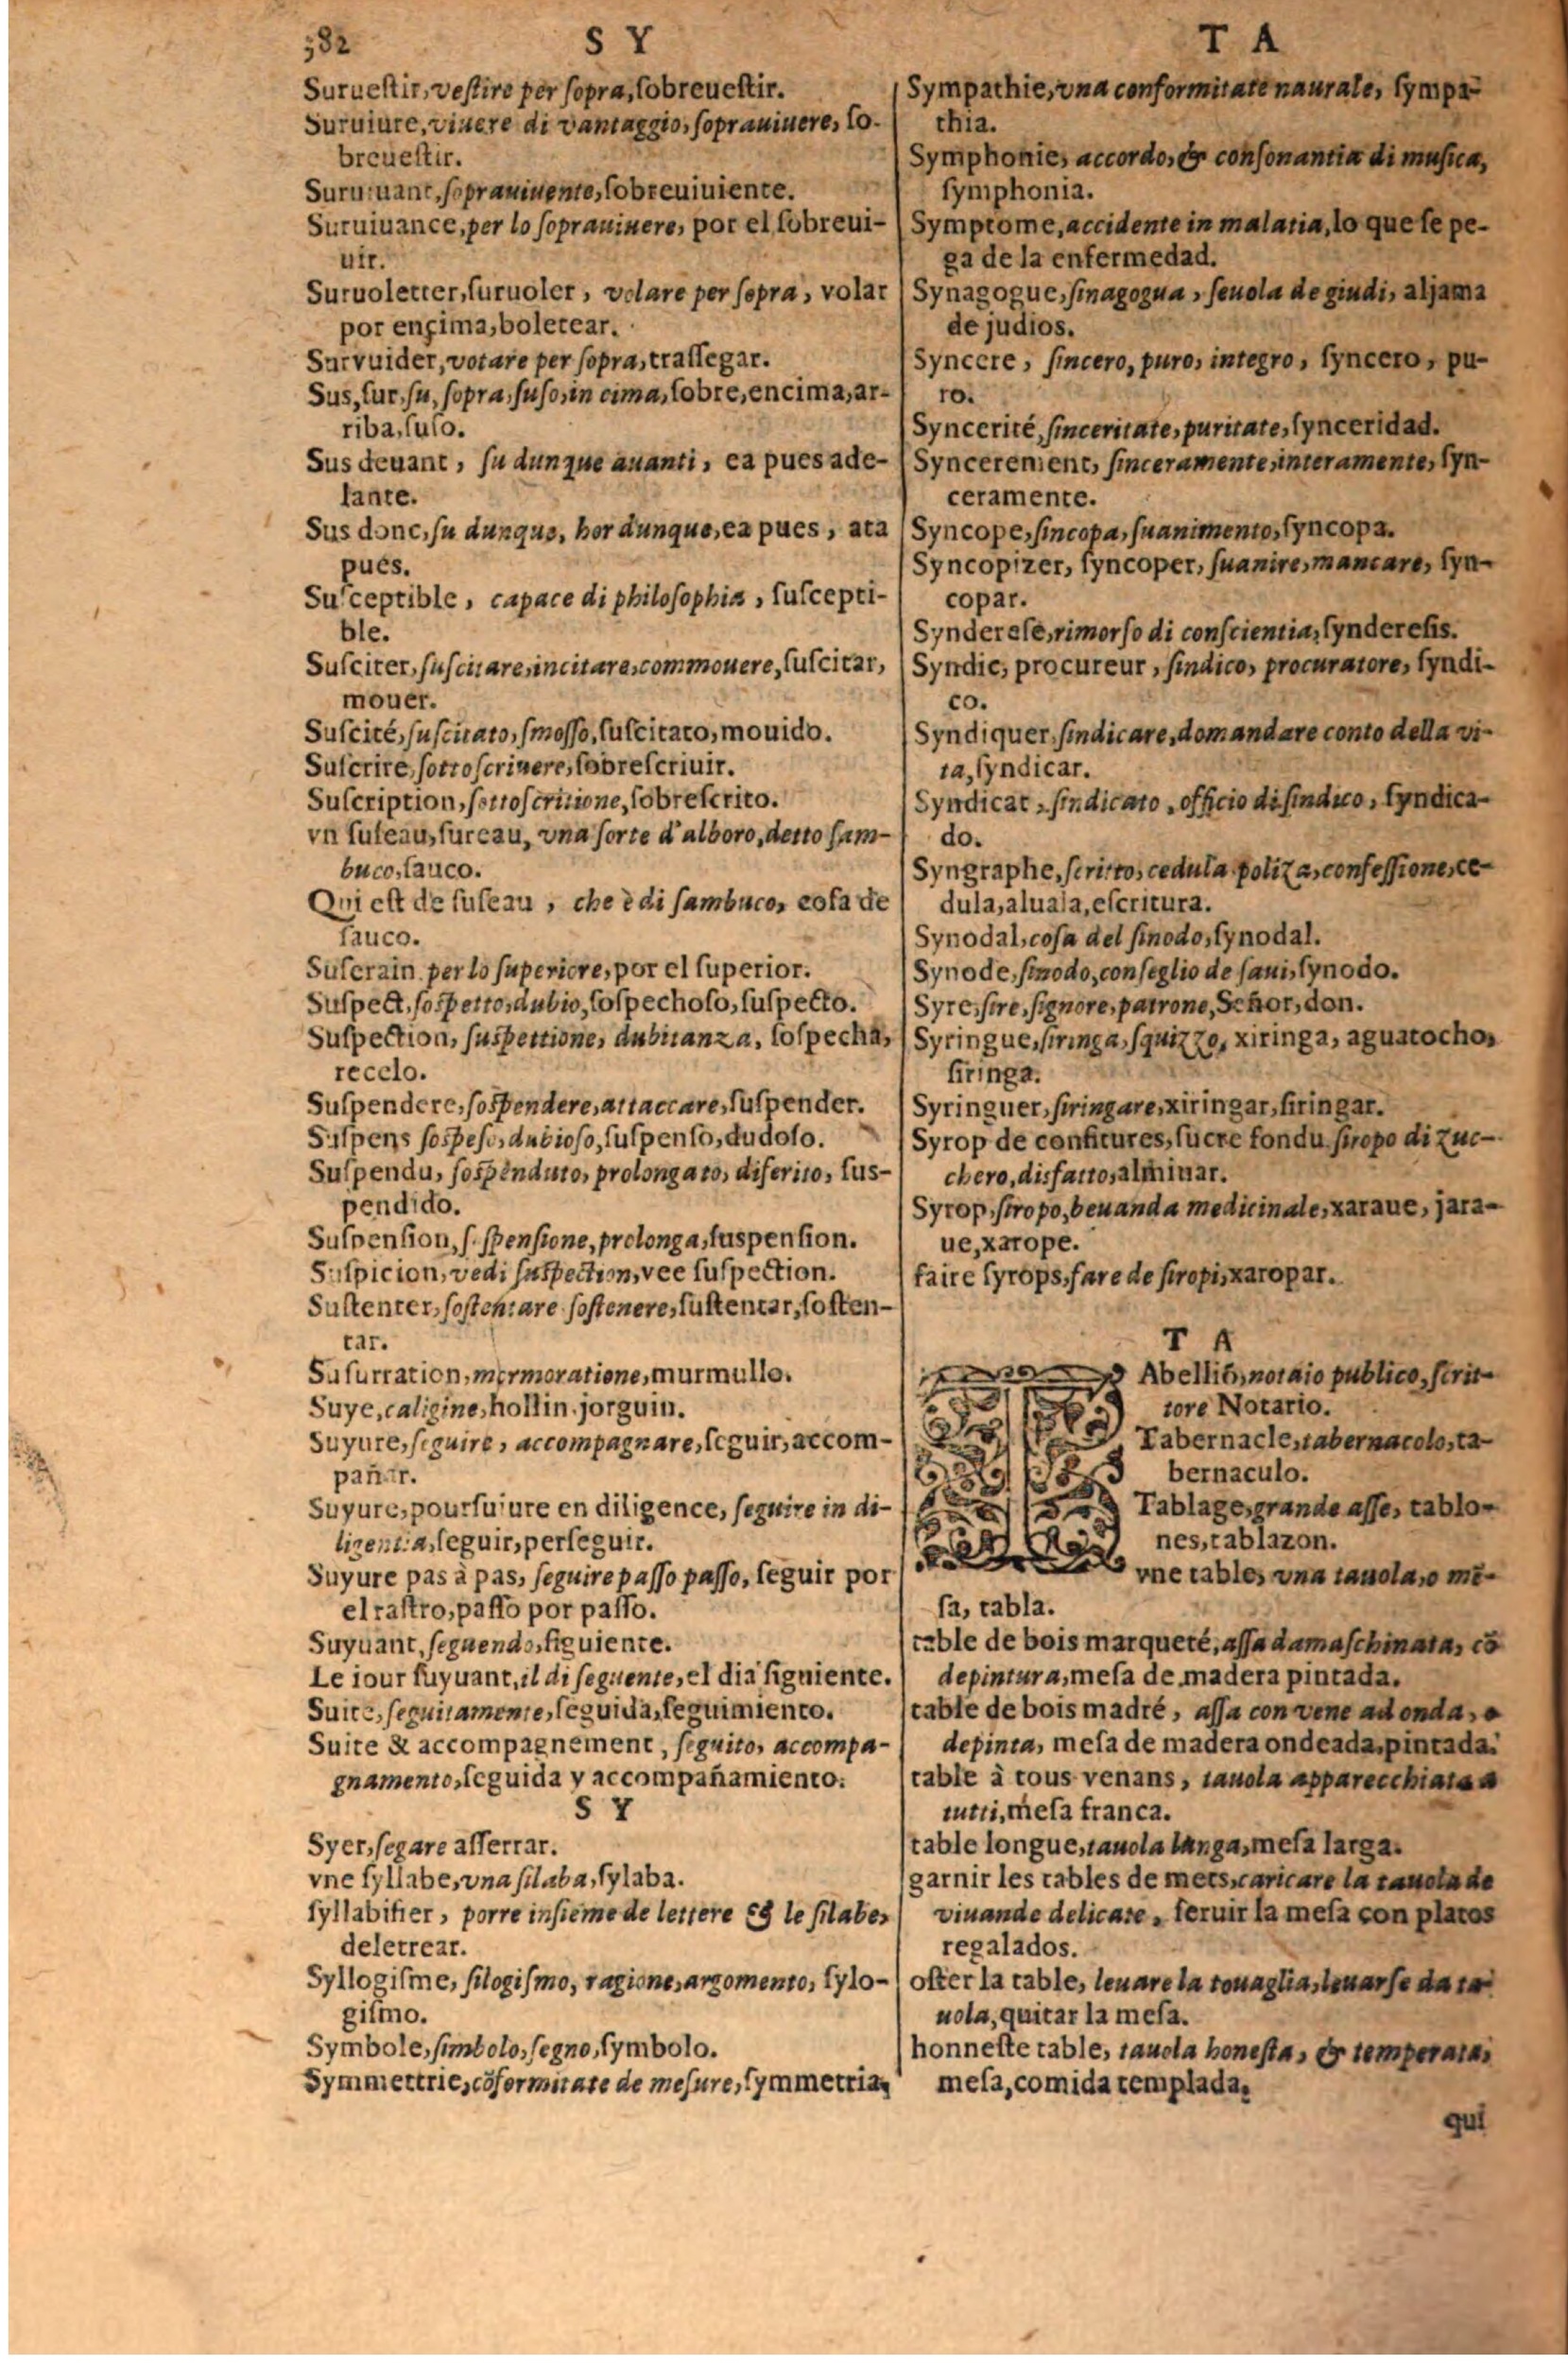 382 S Y T A
Suruestir, vestire per sopra, sobreuestir.
Suruiure, viuere di vantaggio, soprauiuere, so-
breuestir.
Suruiuant, soprauiuente, sobreuiuiente.
Suruiuance, per lo soprauiuere, por el sobreui-
uir.
Suruoletter, suruoler, volare per sopra, volar
por ençima, boletear.
Survuider, votare per sopra, trassegar.
Sus, sur, su, sopra, suso, in cima, sobre, encima, ar-
riba, suso.
Sus deuant, su dunque auanti, ea pues ade-
lante.
Sus donc, su dunque, hor dunque, ea pues, ata
pues.
Susceptible, capace di philosophia, suscepti-
ble.
Susciter, suscitare, incitare, commouere, suscitar,
mouer.
Suscité, suscitato, smosso, suscitato, mouido.
Suscrire, sottoscriuere, sobrescriuir.
Suscription, sottoscritione, sobrescrito.
vn suseau, sureau, vna sorte d'alboro, detto sam-
buco, sauco.
Qui est de suseau, che è di sambuco, cosa de
sauco.
Suserain per lo superiore, por el superior.
Suspect, sospetto, dubio, sospechoso, suspecto.
Suspection, suspettione, dubitanza, sospecha,
recelo.
Suspendere, sospendere, attaccare, suspender.
Suspens sospeso, dubioso, suspenso, dudoso.
Suspendu, sospenduto, prolongato, diferito, sus-
pendido.
Suspension, sospensione, prolonga, suspension.
Suspicion, vedi suspection, vee suspection.
Sustenter, sostentare sostenere, sustentar, sosten-
tar.
Susurration, mormoratione, murmullo.
Suye, caligine, hollin jorguin.
Suyure, seguire, accompagnare, seguir, accom-
pañar.
Suyure, poursuiure en diligence, seguire in di-
ligentia, seguir, perseguir.
Suyure pas à pas, seguire passo passo, seguir por
el rastro, passo por passo.
Suyuant, seguendo, siguiente.
Le iour suyuant, il di seguente, el dia siguiente.
Suite, seguitamente, seguida, seguimiento.
Suite & accompagnement, seguito, accompa-
gnamento, seguida y accompañamiento.
S Y
Syer, segare asserrar.
vne syllabe, vna silaba, sylaba.
syllabifier, porre insieme de lettere & le silabe,
deletrear.
Syllogisme, silogismo, ragione, argomento, sylo-
gismo.
Symbole, simbolo, segno, symbolo.
Symmettrie, cõformitate de mesure, symmetria,
Sympathie, vna conformitate naurale, sympa-
thia.
Symphonie, accordo, & consonantia di musica,
symphonia.
Symptome, accidente in malatia, lo que se pe-
ga de la enfermedad.
Synagogue, sinagogua, seuola de giudi, aljama
de judios.
Syncere, sincero, puro, integro, syncero, pu-
ro.
Syncerité, sinceritate, puritate, synceridad.
Syncerement, sinceramente, interamente, syn-
ceramente.
Syncope, sincopa, suanimento, syncopa.
Syncopizer, syncoper, suanire, mancare, syn-
copar.
Synderese, rimorso di conscientia, synderesis.
Syndic, procureur, sindico, procuratore, syndi-
co.
Syndiquer, sindicare, domandare conto della vi-
ta, syndicar.
Syndicat, sindicato, officio di sindico, syndica-
do.
Syngraphe, scritto, cedula poliza, confessione, ce-
dula, aluala, escritura.
Synodal, cosa del sinodo, synodal.
Synode, sinodo, conseglio de saui, synodo.
Syre, sire, signore, patrone, Señor, don.
Syringue, siringa, squizzo, xiringa, aguatocho,
siringa.
Syringuer, siringare, xiringar, siringar.
Syrop de confitures, sucre fondu siropo di zuc-
chero, disfatto, alminar.
Syrop, siropo, beuanda medicinale, xaraue, jara-
ue, xarope.
faire syrops, fare de siropi, xaropar.
T A
TAbelliõ, notaio publico, scrit-
tore Notario.
Tabernacle, tabernacolo, ta-
bernaculo.
Tablage, grande asse, tablo-
nes, tablazon.
vne table, vna tauola, o mē-
sa, tabla.
table de bois marqueté, assa damaschinata, cõ
depintura, mesa de madera pintada.
table de bois madré, assa con vene ad onda, o
depinta, mesa de madera ondeada, pintada.
table à tous venans, tauola apparecchiata a
tutti, mesa franca.
table longue, tauola longa, mesa larga.
garnir les tables de mets, caricare la tauola de
viuande delicate, seruir la mesa con platos
regalados.
oster la table, leuare la touaglia, leuarse da ta-
uola, quitar la mesa.
honneste table, tauola honesta, & temperata,
mesa, comida templada.
qui